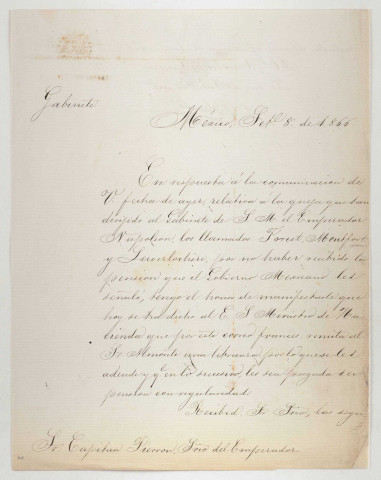 Gabinete
México, Set.e 8. de 1866
En respuesta á la comunicacion de
V. fecha de ayer, relativa á la queja que han
dirigido al Gabinete de S. M. el Emperador
Napoleon, los llamados Forest, Montfort
y por no haber recibido la
pension que el Gobierno Mexicano les
señaló, tengo el honor de manifestarle que
hoy se ha dicho al E. S. Ministro de Ha-
cienda que por este correo frances, remita al
Sr. Almonte una libranza por lo que se les
adeude y q.e en lo sucesivo, les sea pagada su
pension con regularidad.
Recibid, Sr. Srio, las segu
Sr. Capitan Pierron, Srio del Emperador